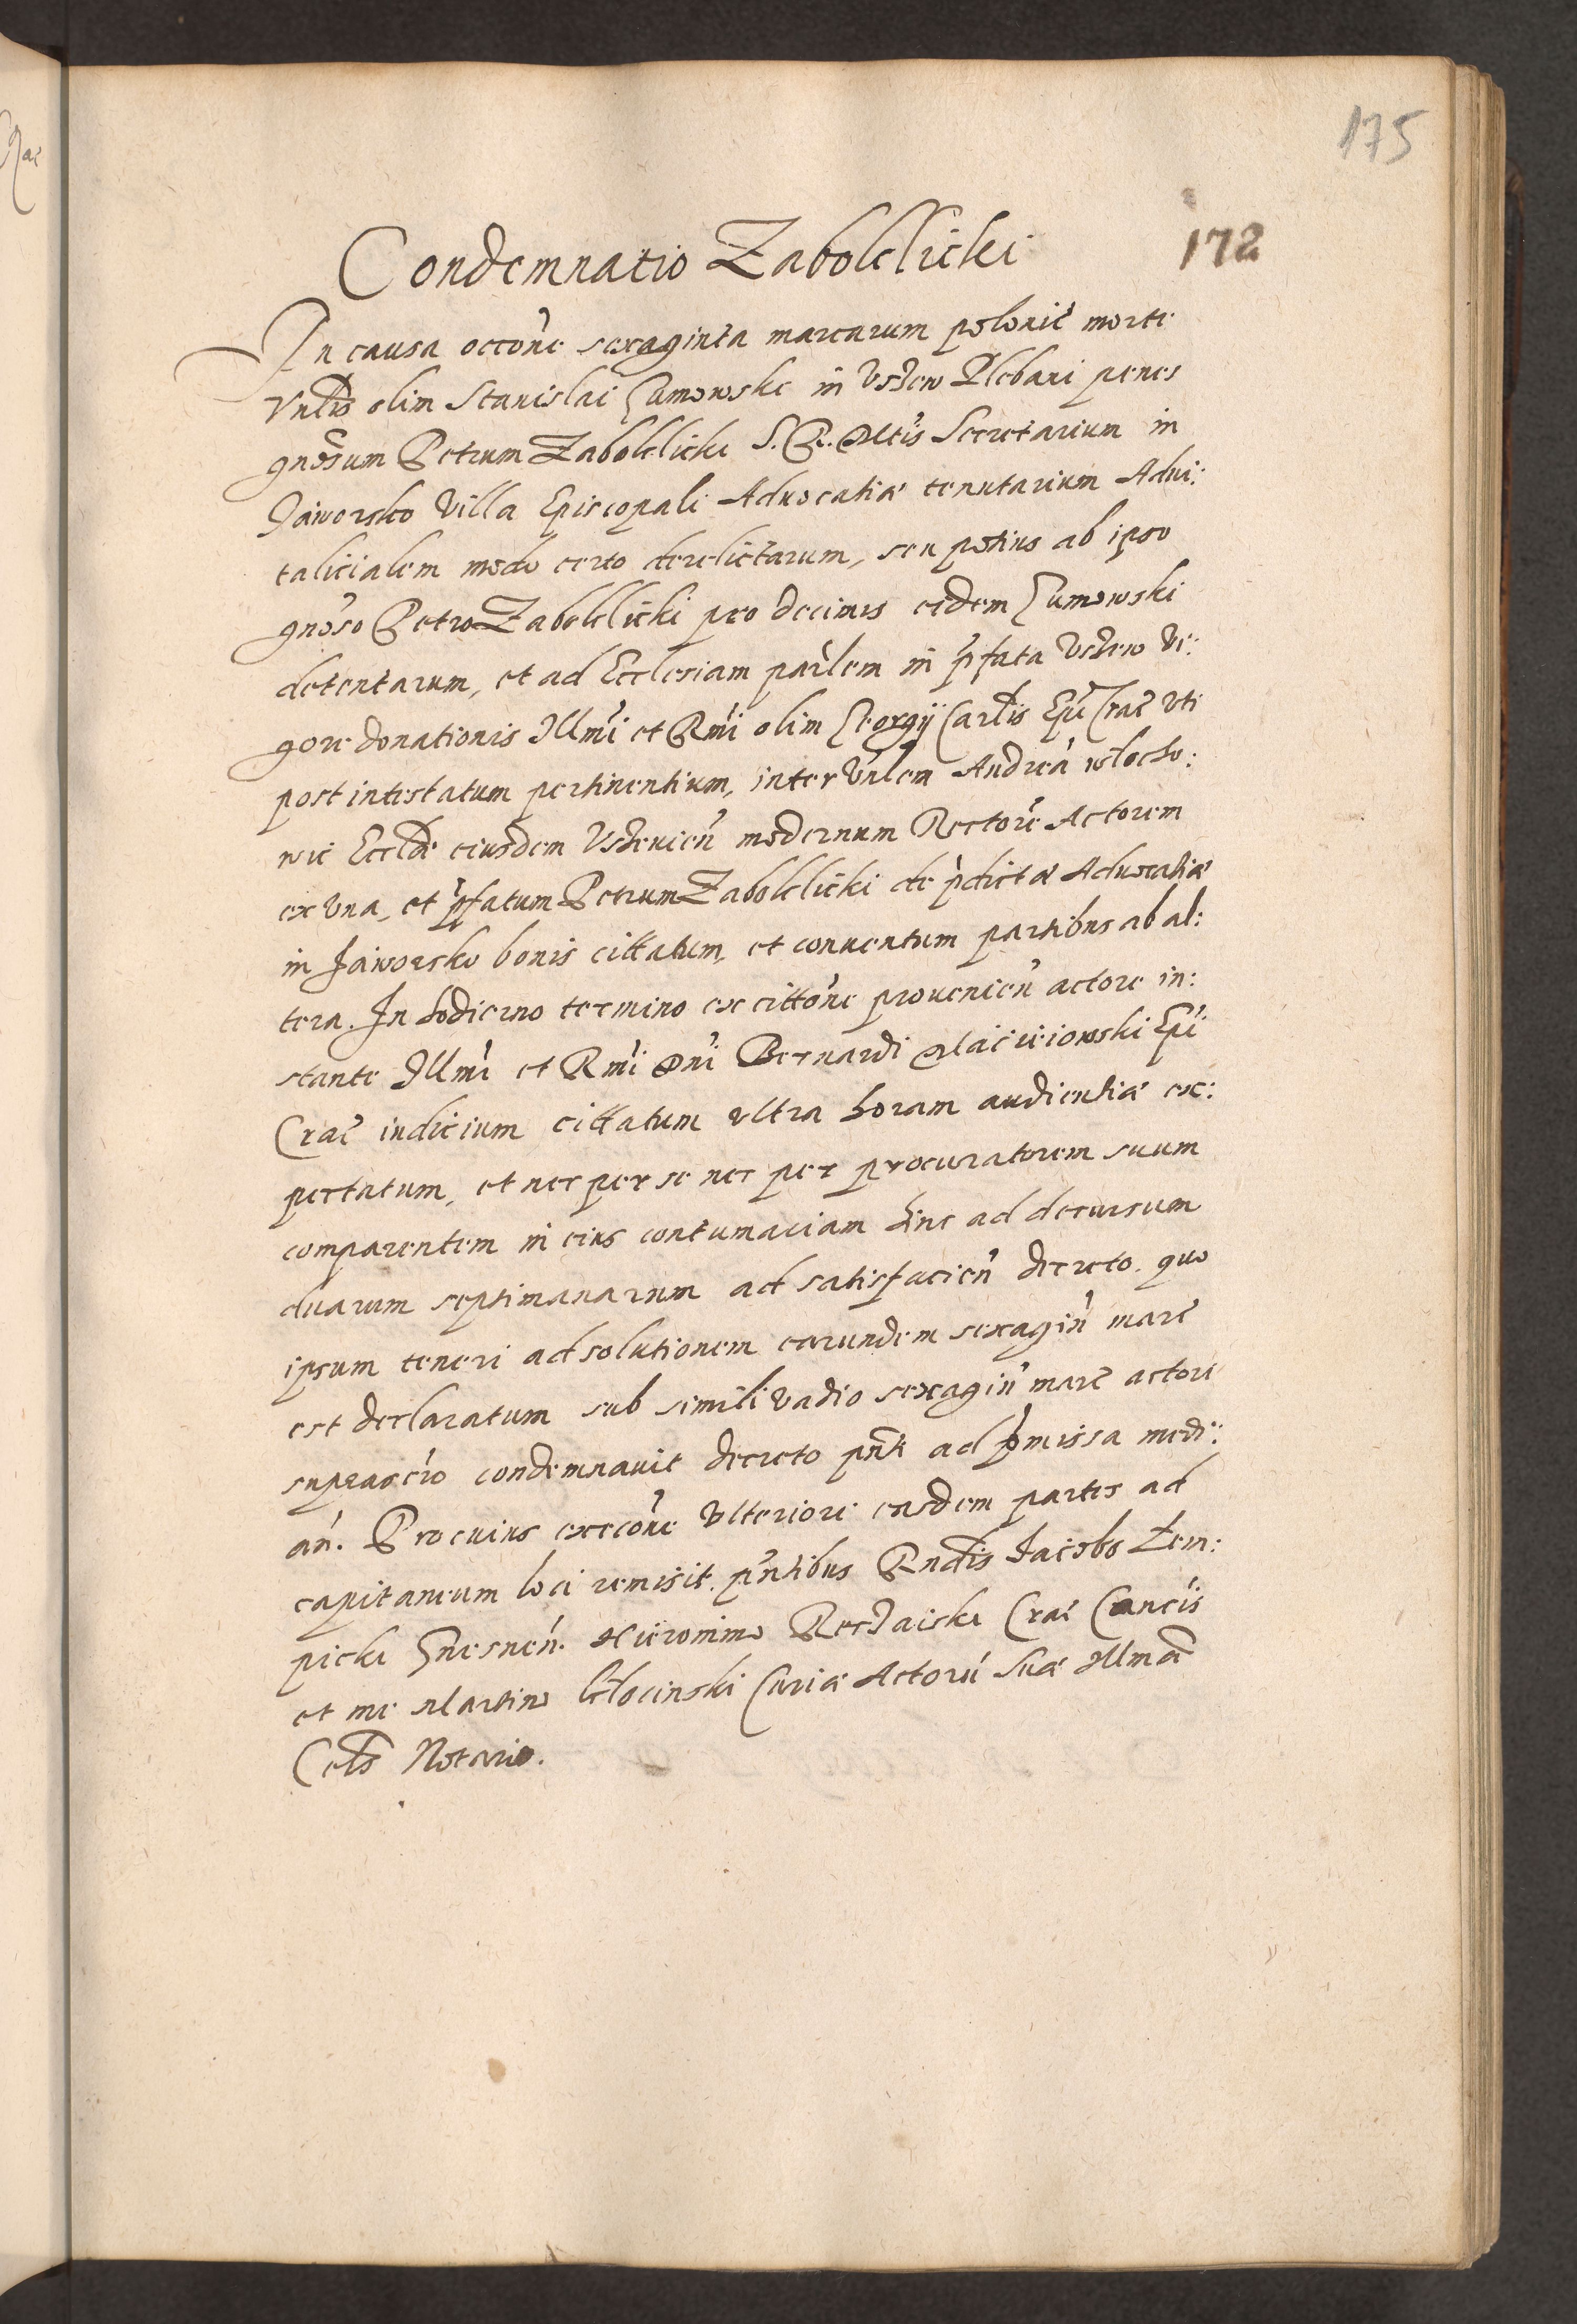 175
172
Condemnatio Zabokliczki
In causa occõne sexaginta marcarum polonic̃ morte
Vnlis olim Stanislai Gumowski in Usʒew Plebani penes
gnõsum Petrum Zabokliczki S. R. Mtis Secretarium in
Jaworsko Villa Episcopali Aduocatiæ tenutarium Adui:
talicialem modo certo derelictarum, seu potius ab ipso
gnõso Petro Zabokliczki pro decimis eidem Gumowski
detentarum, et ad Ecclesiam parlem in p̃fata Usʒew vi:
gore donationis Illmi et Rmi olim Georgij Cardlis Epi Crac̃ uti
post intestatum pertinentium, inter Vnlem Andreã
Eccliæ eiusdem Usʒeuien̄ modernum Rectorẽ Actorem
ex una, et p̃fatum Petrum Zabokliczki de p̃dictæ Aduocatiæ
in Jaworsko bonis cittatum, et conuentum partibus ab al:
tera. In hodierno termino ex cittõne prouenien̄ actore in:
stante Illmi et Rmi Dni Bernardi Macieiowski Epi
Crac̃ iudicium cittatum ultra horam audientiæ ex:
pectatum, et nec per se nec per procuratorem suum
comparentem in eius contumaciam hinc ad decursum
duarum septimanarum ad satisfacien̄ decreto. quo
ipsum teneri ad solutionem earundem sexagin̄ marc̃
est declaratum sub simili vadio sexagin̄ marc̃ actori
suprascr̃o condemnauit decreto pn̄ti ad p̃missa medi:
an̄. Pro cuius execõne ulteriore easdem partes ad
capitaneum loci remisit. pn̄tibus Rndis Jacobo Zem:
picki Gnesnen̄. Hieronimo Recʒaiski Crac̃ Canc̃is
et me Martino Curiæ Actorũ Suæ Illmæ
Cels Notario.